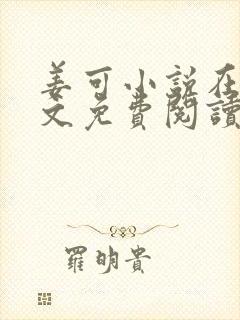 姜可小说在
文免費閱讀
羅明貴